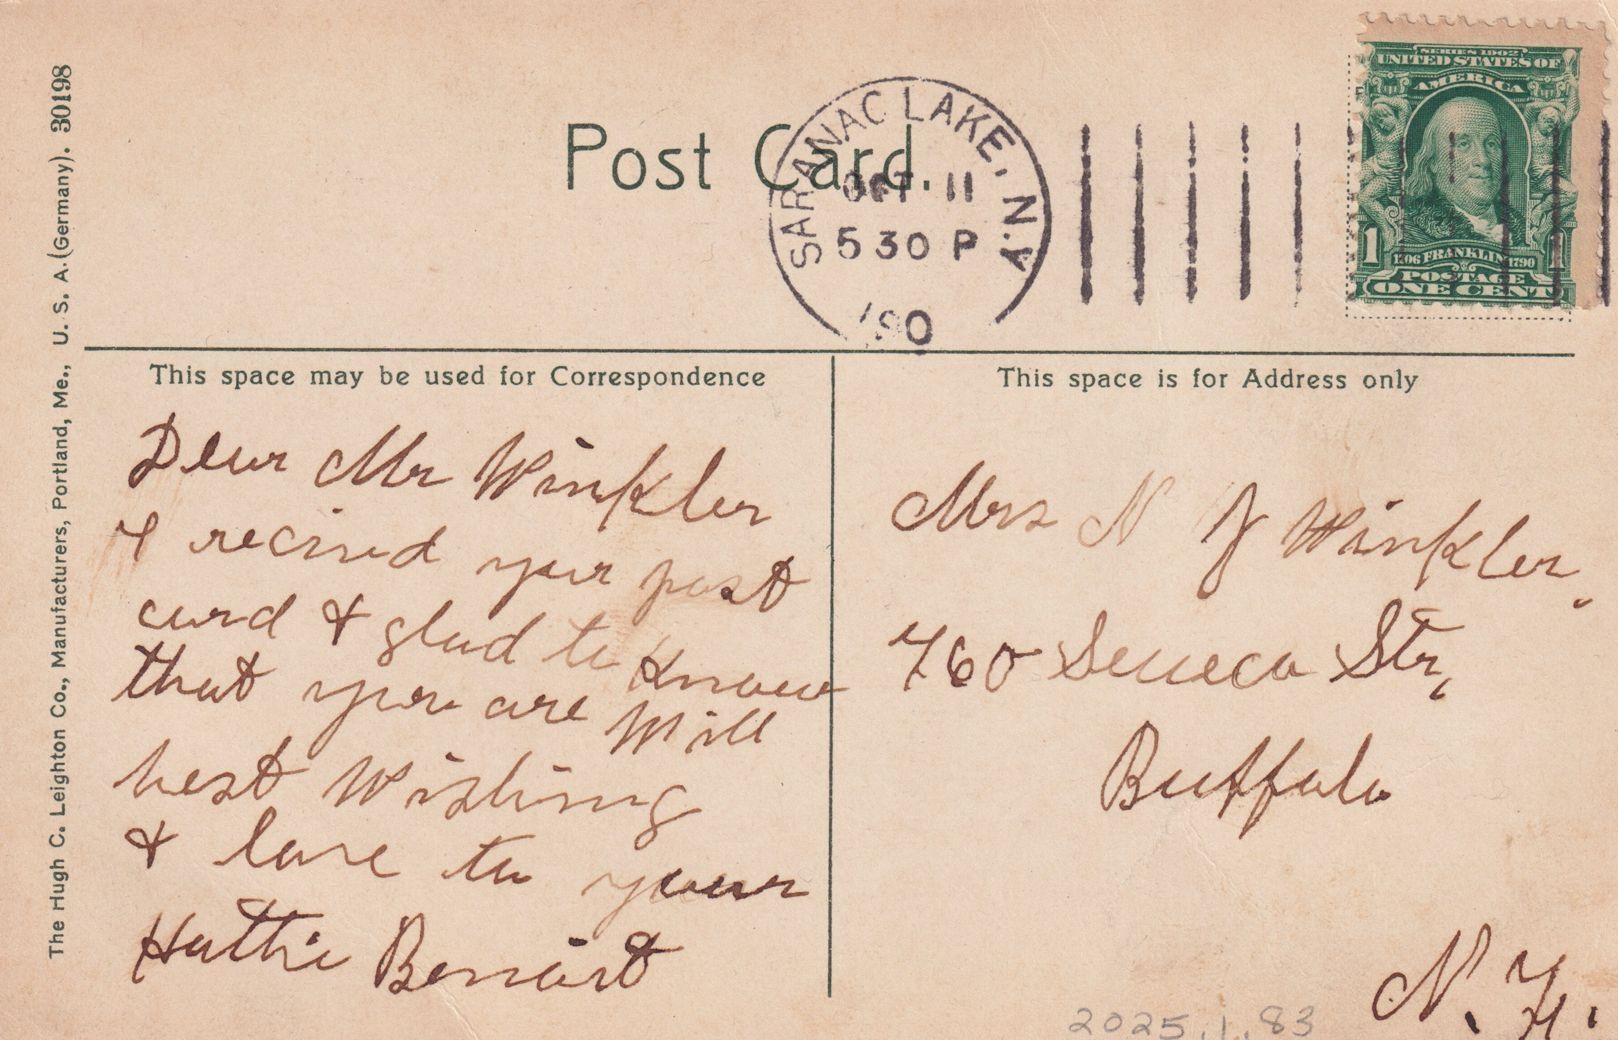 The Hugh C. Leighton Co., Manufacturers, Portland, Me., U. S. A. (Germany). 30198
Post Card.
SARANAC LAKE, N.Y.
OCT 11
5 30 P
190
SERIES 1902
UNITED STATES OF
AMERICA
1 1706 FRANKLIN 1790 1
POSTAGE
ONE CENT
This space may be used for Correspondence
Dear Mr Winkler
I recived your post
card & glad to Know
that you are Will
best Wishing
& love to your
Hattie
This space is for Address only
Mrs N J Winkler,
760 Seneca Str,
Buffalo
N. Y.
2025.1.83